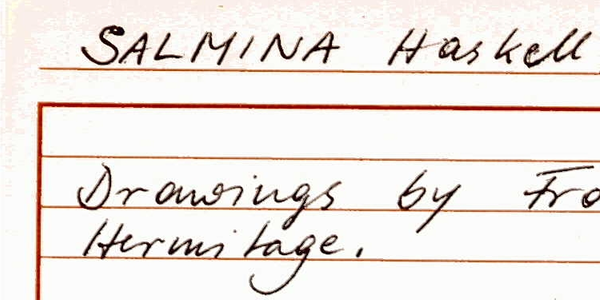 SALMINA Haskell
Drawings by
Hermitage.